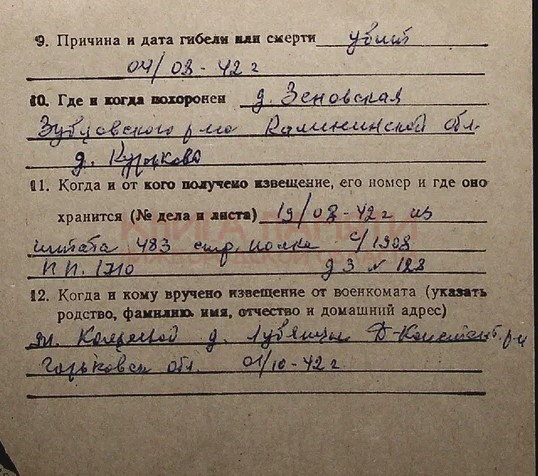 9. Причина и дата гибели или смерти убит
04/08-42 г
10. Где и когда похоронен д. Зеновская
Зубцовского р-на Калининской обл.
д. Курьково
11. Когда и от кого получено извещение, его номер и где оно
хранится (№ дела и листа) 19/08-42 г из
штата 483 стр. полка с/1908
П.П. 1710 д 3 N 128
12. Когда и кому вручено извещение от военкомата (указать
родство, фамилию, имя, отчество и домашний адрес)
д. Лубянцы Д-Констант. р-н
Горьковск обл. 01/10-42 г.
КНИГА ПАМЯТИ